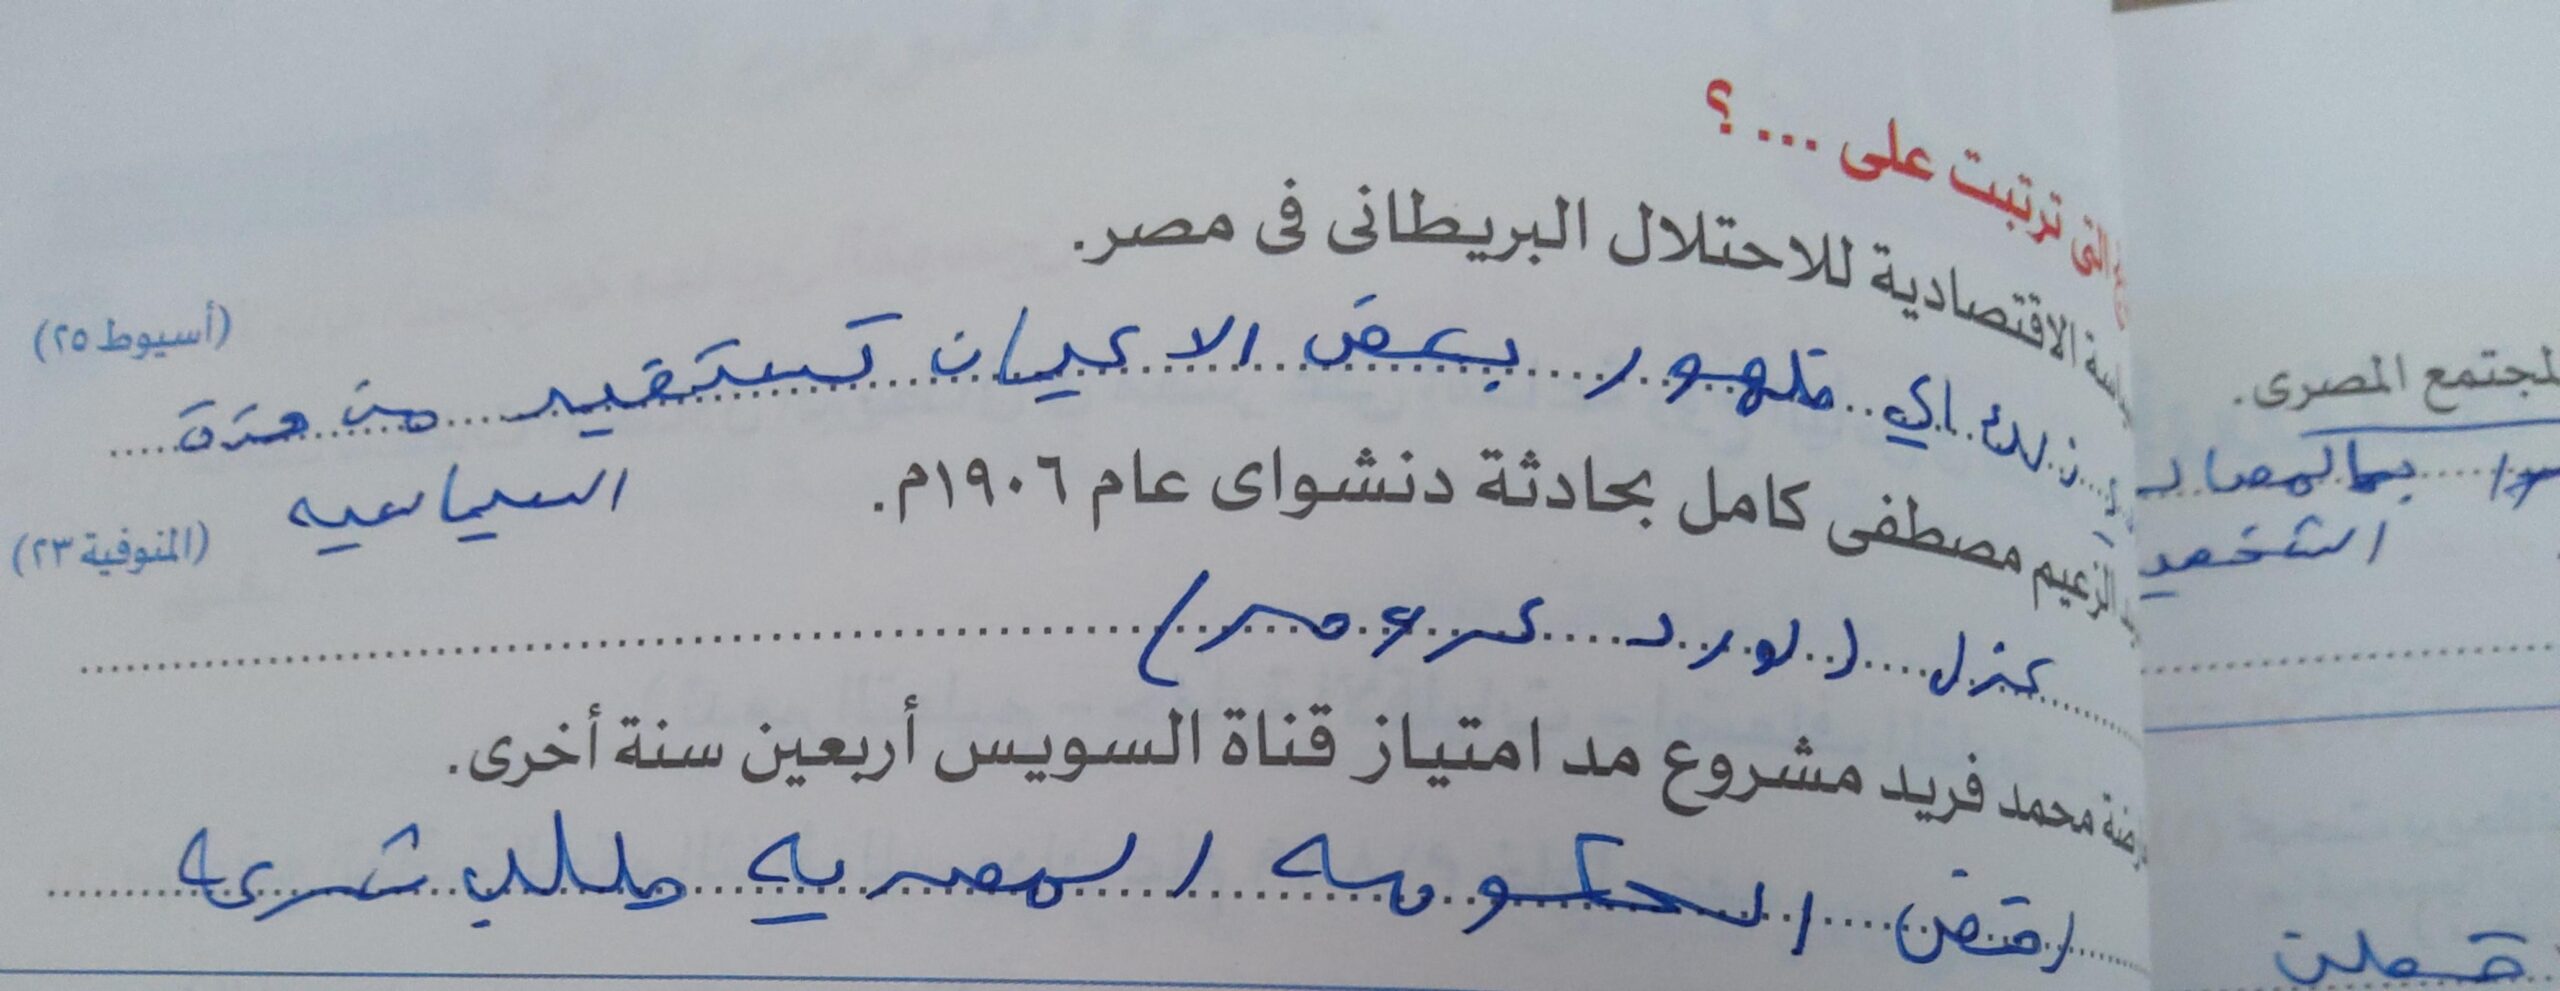 التى ترتبت على ... ؟
الاقتصادية للاحتلال البريطانى فى مصر.
(أسيوط ٢٥)
اي ظهور بعض الاعيان تستفيد من هذة
السياسيه
الزعيم مصطفى كامل بحادثة دنشواى عام ١٩٠٦م.
(المنوفية ٢٣)
عزل (لورد كرومر)
محمد فريد مشروع مد امتياز قناة السويس أربعين سنة أخرى.
الحكومه المصريه طلب شركه
لمجتمع المصرى.